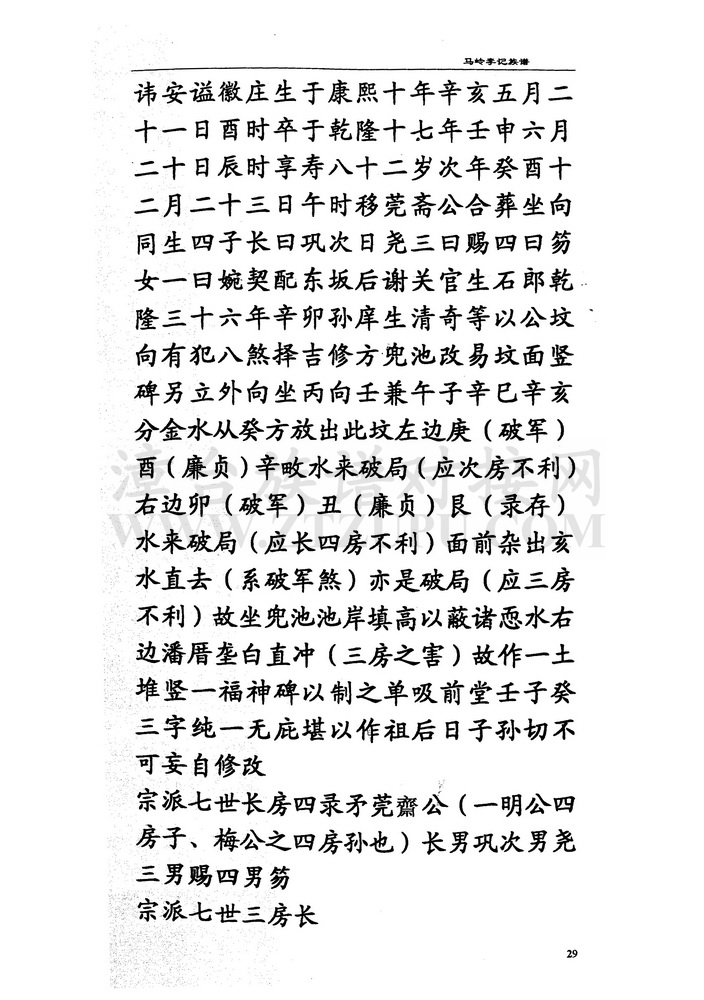 马岭李记族谱
讳安谥徽庄生于康熙十年辛亥五月二
十一日酉时卒于乾隆十七年壬申六月
二十日辰时享寿八十二岁次年癸酉十
二月二十三日午时移莞斋公合葬坐向
同生四子长曰巩次日尧三曰赐四曰笏
女一曰婉契配东坂后谢关官生石郎乾
隆三十六年辛卯孙庠生清奇等以公坟
向有犯八煞择吉修方兜池改易坟面竖
碑另立外向坐丙向壬兼午子辛巳辛亥
分金水从癸方放出此坟左边庚（破军）
酉（廉贞）辛畋水来破局（应次房不利）
右边卯（破军）丑（廉贞）艮（录存）
水来破局（应长四房不利）面前杂出亥
水直去（系破军煞）亦是破局（应三房
不利）故坐兜池池岸填高以蔽诸恶水右
边潘厝垄白直冲（三房之害）故作一土
堆竖一福神碑以制之单吸前堂壬子癸
三字纯一无庇堪以作祖后日子孙切不
可妄自修改
宗派七世长房四录矛莞齋公（一明公四
房子、梅公之四房孙也）长男巩次男尧
三男赐四男笏
宗派七世三房长
29
漳台族谱对接网
WWW.ZTZUPU.COM